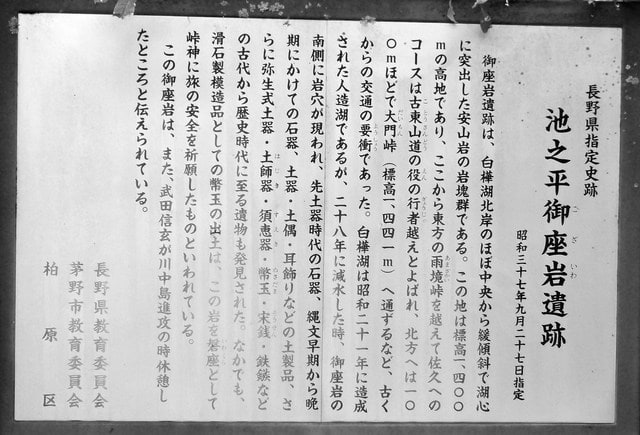 長野県指定史跡
池之平御座岩遺跡
昭和三十七年九月二十七日指定
御座岩遺跡は、白樺湖北岸のほぼ中央から緩傾斜で湖心
に突出した安山岩の岩塊群である。この地は標高一、四〇〇
mの高地であり、ここから東方の雨境峠を越えて佐久への
コースは古東山道の役の行者越えとよばれ、北方へは一〇
〇mほどで大門峠（標高一、四四一m）へ通ずるなど、古く
からの交通の要衝であった。白樺湖は昭和二十一年に造成
された人造湖であるが、二十八年に減水した時、御座岩の
南側に岩穴が現われ、先土器時代の石器、縄文早期から晩
期にかけての石器、土器・土偶・耳飾りなどの土製品、さ
らに弥生式土器・土師器・須恵器・幣玉・宋銭・鉄鏃など
の古代から歴史時代に至る遺物も発見された。なかでも、
滑石製模造品としての幣玉の出土は、この岩を磐座として
峠神に旅の安全を祈願したものといわれている。
この御座岩は、また、武田信玄が川中島進攻の時休憩し
たところと伝えられている。
長野県教育委員会
茅野市教育委員会
柏原区